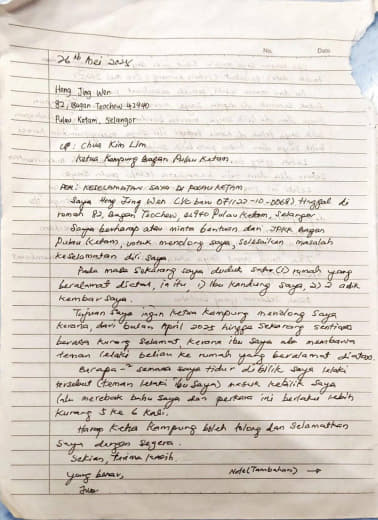 No. Date
26hb Mei 2025
Hong Jing Wen
82, Bagan Teochew 42940
Pulau Ketam, Selangor
UP: Chua Kim Lim
Ketua Kampung Bagan Pulau Ketam.
PER: KESELAMATAN SAYA DI PULAU KETAM.
Saya Hong Jing Wen (I/C baru 071122-10-0068) tinggal di
rumah 82, Bagan Teochew, 42940 Pulau Ketam, Selangor.
Saya berharap atau minta bantuan dari JPKK Bagan
Pulau Ketam, untuk menolong saya, selesaikan masalah
keselamatan diri saya.
Pada masa sekarang saya duduk rumah yang
beralamat diatas, ia itu, 1) Ibu kandung saya, 2) 2 adik
kembar saya.
Tujuan saya ingin Ketua Kampung menolong saya
kerana, dari bulan April 2025 hingga sekarang sentiasa
berasa kurang selamat, kerana ibu saya ada membawa
teman lelaki beliau ke rumah yang beralamat diatas.
Berapa-2 semasa saya tidur di bilik saya lelaki
tersebut (teman lelaki ibu saya) masuk kebilik saya
lalu merebak bahu saya dan perkara ini berlaku lebih
kurang 5 ke 6 kali.
Harap Ketua Kampung boleh tolong dan selamatkan
saya dengan segera.
Sekian, terima kasih.
Yang benar, Note (Tambahan) →